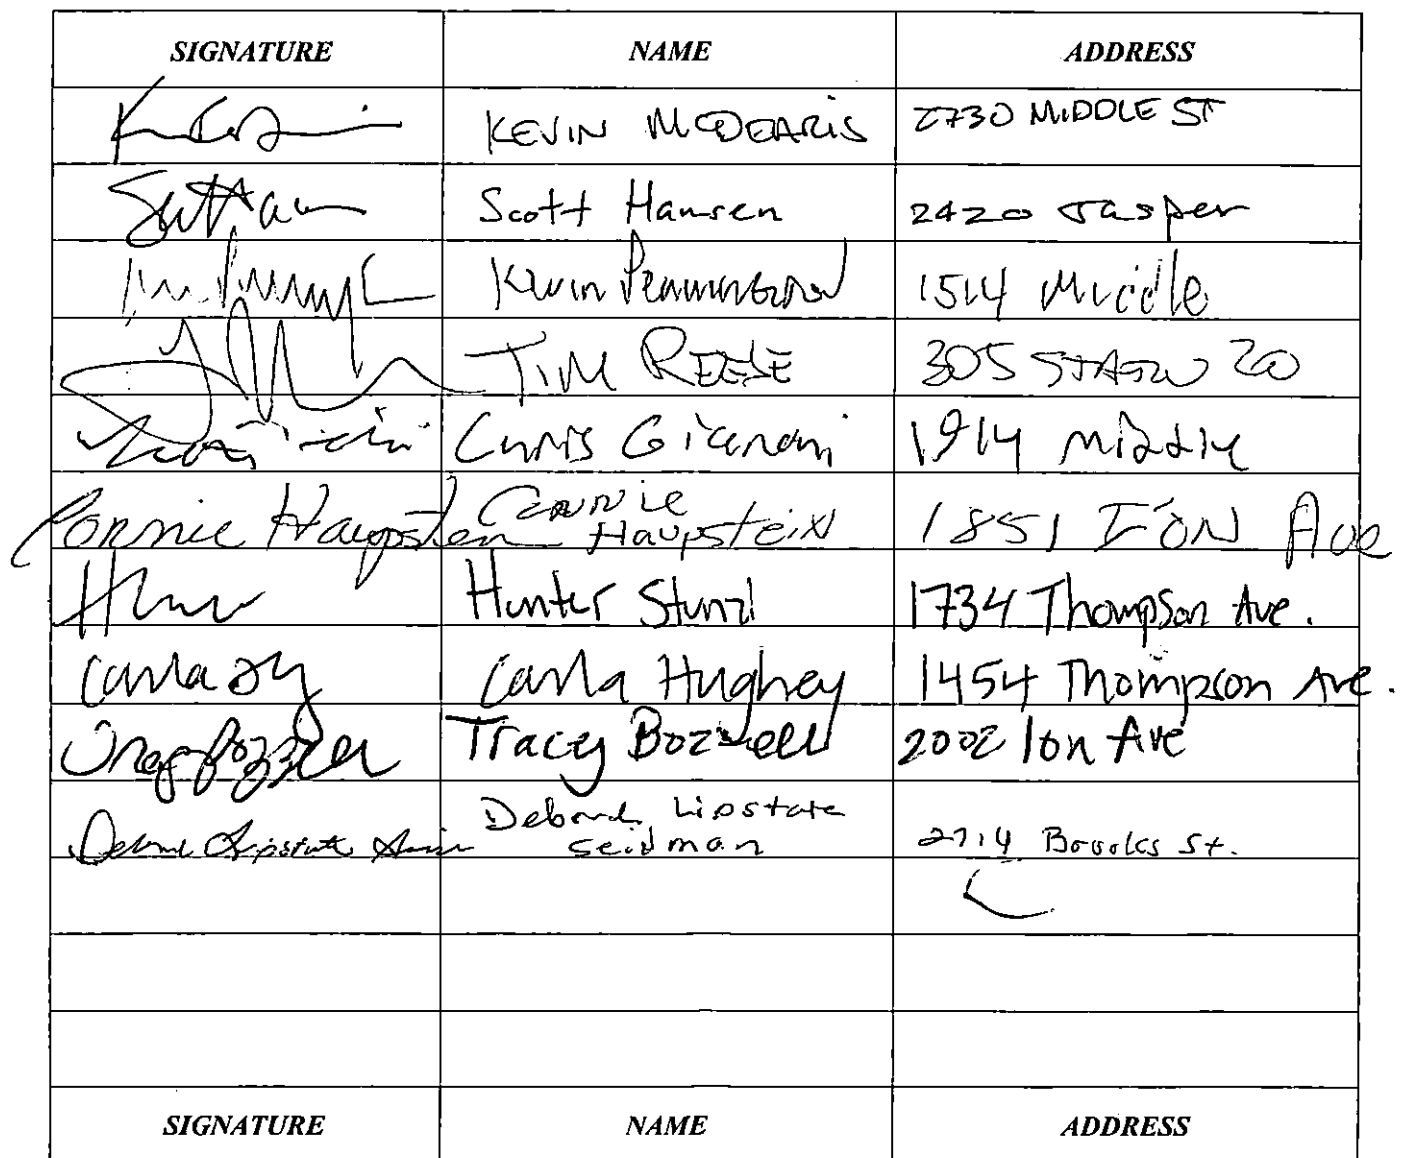 SIGNATURE NAME ADDRESS
KEVIN McDEARIS 2730 MIDDLE ST
Scott Hansen 2420 Jasper
Kevin Pennington 1514 Middle
TIM REESE 305 STATION 20
Chris 1914 Middle
Connie Haupstein Connie Haupstein 1851 ION Ave
Hunter Stunzi 1734 Thompson Ave.
Carla Hughey 1454 Thompson Ave.
Tracey Bozzelli 2002 Ion Ave
Deborah Lipstate
Seidman 2714 Brooks St.
SIGNATURE NAME ADDRESS